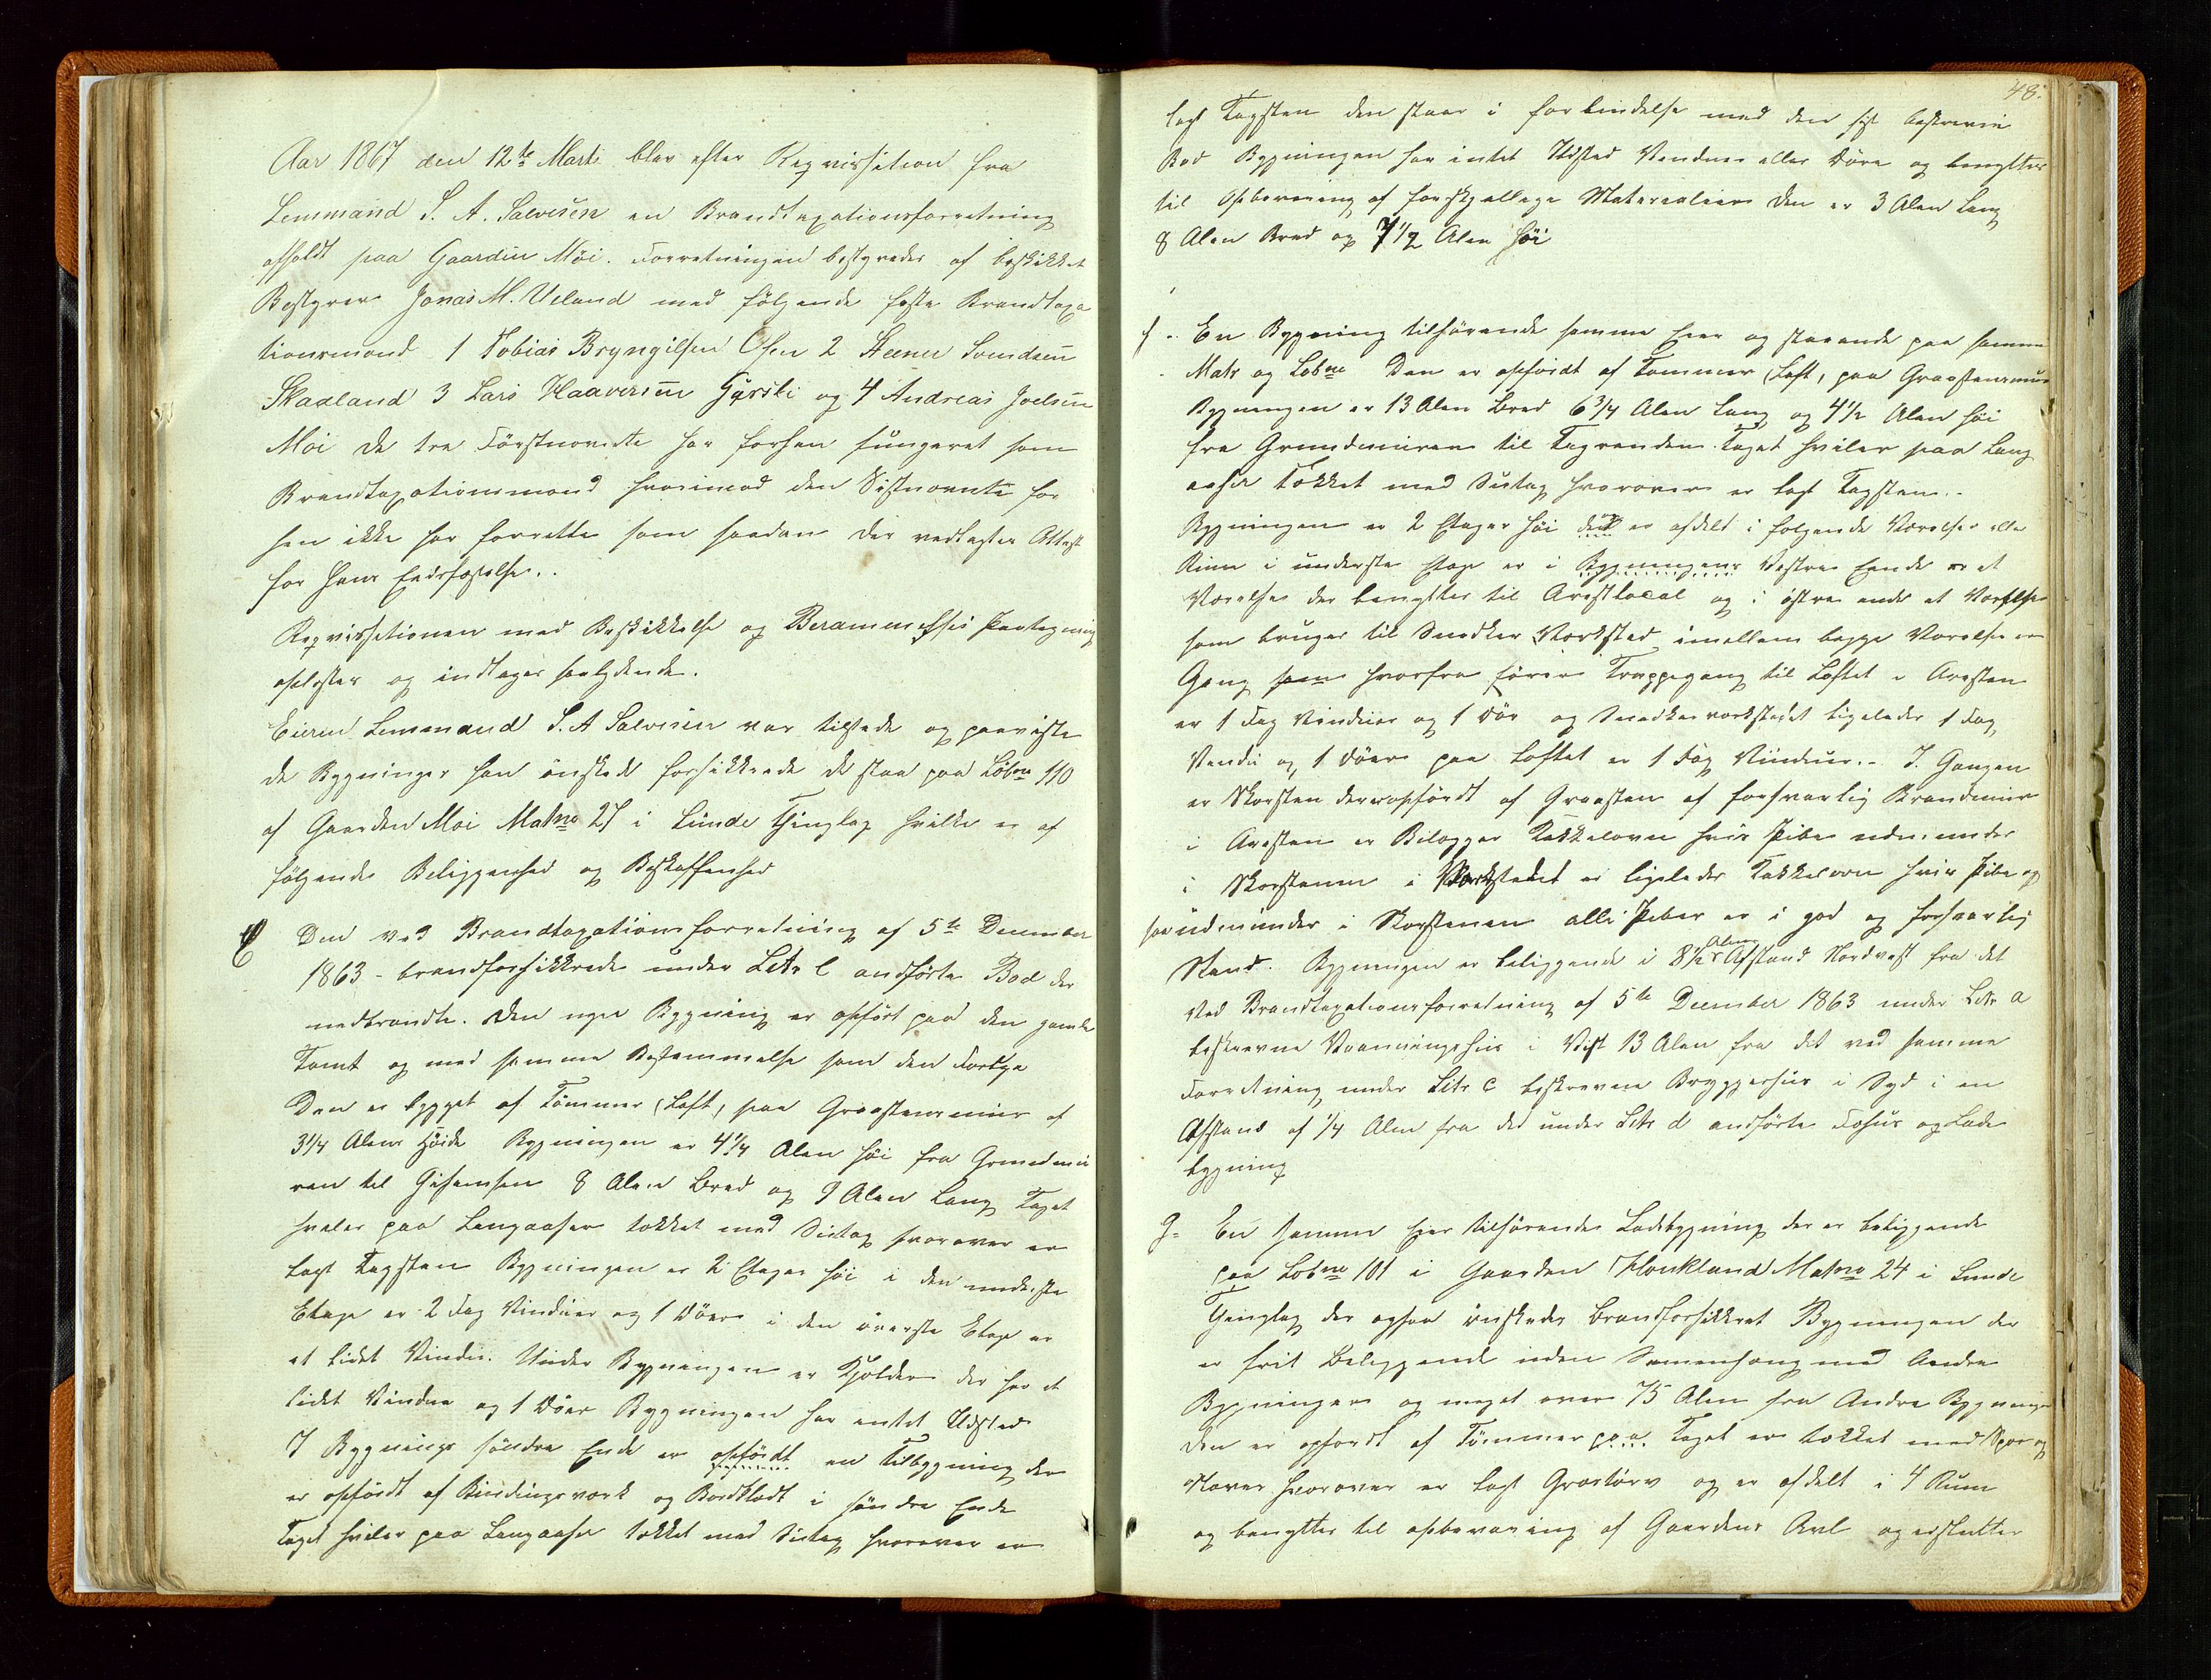 Aar 1867 den 12te Marts blev efter Reqvissition fra
Lensmand S. A. Salvesen en Brandtaxationsforretning
afholdt paa Gaarden Moi. Forretningen bestyredes af beskikket
Bestyrer Jonas M. Ueland med følgende faste Brandtaxa
tionsmænd 1 Tobias Bryngilsen Osen 2 Steener Svendsen
Skaaland 3 Lars Haaversen Gyrski og 4 Andreas Joelsen
Moi de tre Førstnævnte har forhen fungeret som
Brandtaxationsmænd hvorimod den Sistnævnte for
hen ikke har forrettet som saadan der vedlagtes Attest
for hans Eedsfæstelse..
Reqvissitionen med Beskikkelse og Berammelses Paategning
oplæstes og indtages saalydende.
Eieren Lensmand S. A Salvesen var tilstede og paaviste
de Bygninger han ønskede forsikkrede de staa paa Løbno 110
af Gaarden Moi Matno 27 i Lunde Thinglag hvilke er af
følgende Beliggenhed og Beskaffenhed
Den ved Brandtaxationsforretning af 5te December
1863 - brandforsikkrede under Letr e andførte Bod der
nedbrændte. Den nye Bygning er opført paa den gamle
Tomt og med samme Bestemmelse som den Forrige
Den er bygget af Tømmer (Laft, paa Graastensmur af
3 1/4 Alens Høide Bygningen er 4 1/4 Alen høi fra Grundmu
ren til Gesimsen 8 Alen Bred og 9 Alen Lang Taget
hviler paa Langaaser tækket med Sutag hvorover er
lagt Tagsten Bygningen er 2 Etager høi i den underste
Etage er 2 Fag Vinduer og 1 Døer i den øverste Etage er
et lidet Vindu. Under Bygningen er Kjelder der har et
lidet Vindue og 1 Døer Bygningen har intet Udsted
I Bygnings søndre Ende er opførdt en Tilbygning der
er opførdt af Bindingsværk og Bordklædt i søndre Ende
Taget hviler paa Langaaser tækket med Sutag hvorover er
48.
lagt Tagsten den staar i forbindelse med den sist beskrevne
Bod Bygningen har intet Ildsted Venduer eller Døre og benyttes
til Opbevaring af forskjellige Materealier Den er 3 Alen Lang
8 Alen Bred og 7 1/2 Alen høi
f - En Bygning tilhørende samme Eier og staaende paa samme
Matr og Løbno Den er opførdt af Tømmer (Laft, paa Graastensmur
Bygningen er 13 Alen Bred 6 3/4 Alen Lang og 4 1/2 Alen høi
fra Grundmuren til Tagrenden. Taget hviler paa Lang
aaser tækket med Sutag hvorover er lagt Tagsten.-
Bygningen er 2 Etager høi den er afdelt i følgende Værelser eller
Rum i underste Etage er i Bygningens Vestre Ende er et
Værelse der benyttes til Arestlocal og i østre ende et Værelse
som bruges til Snedker Værksted imellem begge Værelser er
Gang som hvorfra fører Trappegang til Loftet i Aresten
er 1 Fag Vinduer og 1 Dør og Snedkerværkstedet ligeledes 1 Fag
Vendu og 1 Døer paa Loftet er 1 Fag Vinduer.- I Gangen
er Skorsten der er opførdt af Graasten af forsvarlig Brandmur
i Aresten er Bilægger Kakkelovn hvis Pibe udmunder
i Skorstenen i Værkstedet er ligeledes Kakkelovn hvis Pibe og
saa udmunder i Skorstenen alle Piber er i god og forsvarlig
Stand. Bygningen er beliggende i 8 1/2 Alens Afstand Nordvest fra det
ved Brandtaxationsforretning af 5te December 1863 under Letr a
beskrevne Vaaningshus i Vest 13 Alen fra det ved samme
Forretning under Letr c beskrevne Bryggerhus i Syd i en
Afstand af 1/4 Alen fra det under Letr d andførte Føhus og Lade
bygning
g - En samme Eier tilhørende Ladebygning der er beliggende
paa Løbno 101 i Gaarden Houkland Matno 24 i Lunde
Thinglag der ogsaa ønskedes Brandforsikkret Bygningen der
er frit Beliggende uden Samenhæng med Andre
Bygninger og meget over 75 Alen fra Andre Bygninger
Den er opførdt af Tømmer paa Taget er tækket med Spær og
Næver hvorover er lagt Græstørv og er afdelt i 4 Rum
og benyttes til opbevaring af Gaardens Avl og erstatter